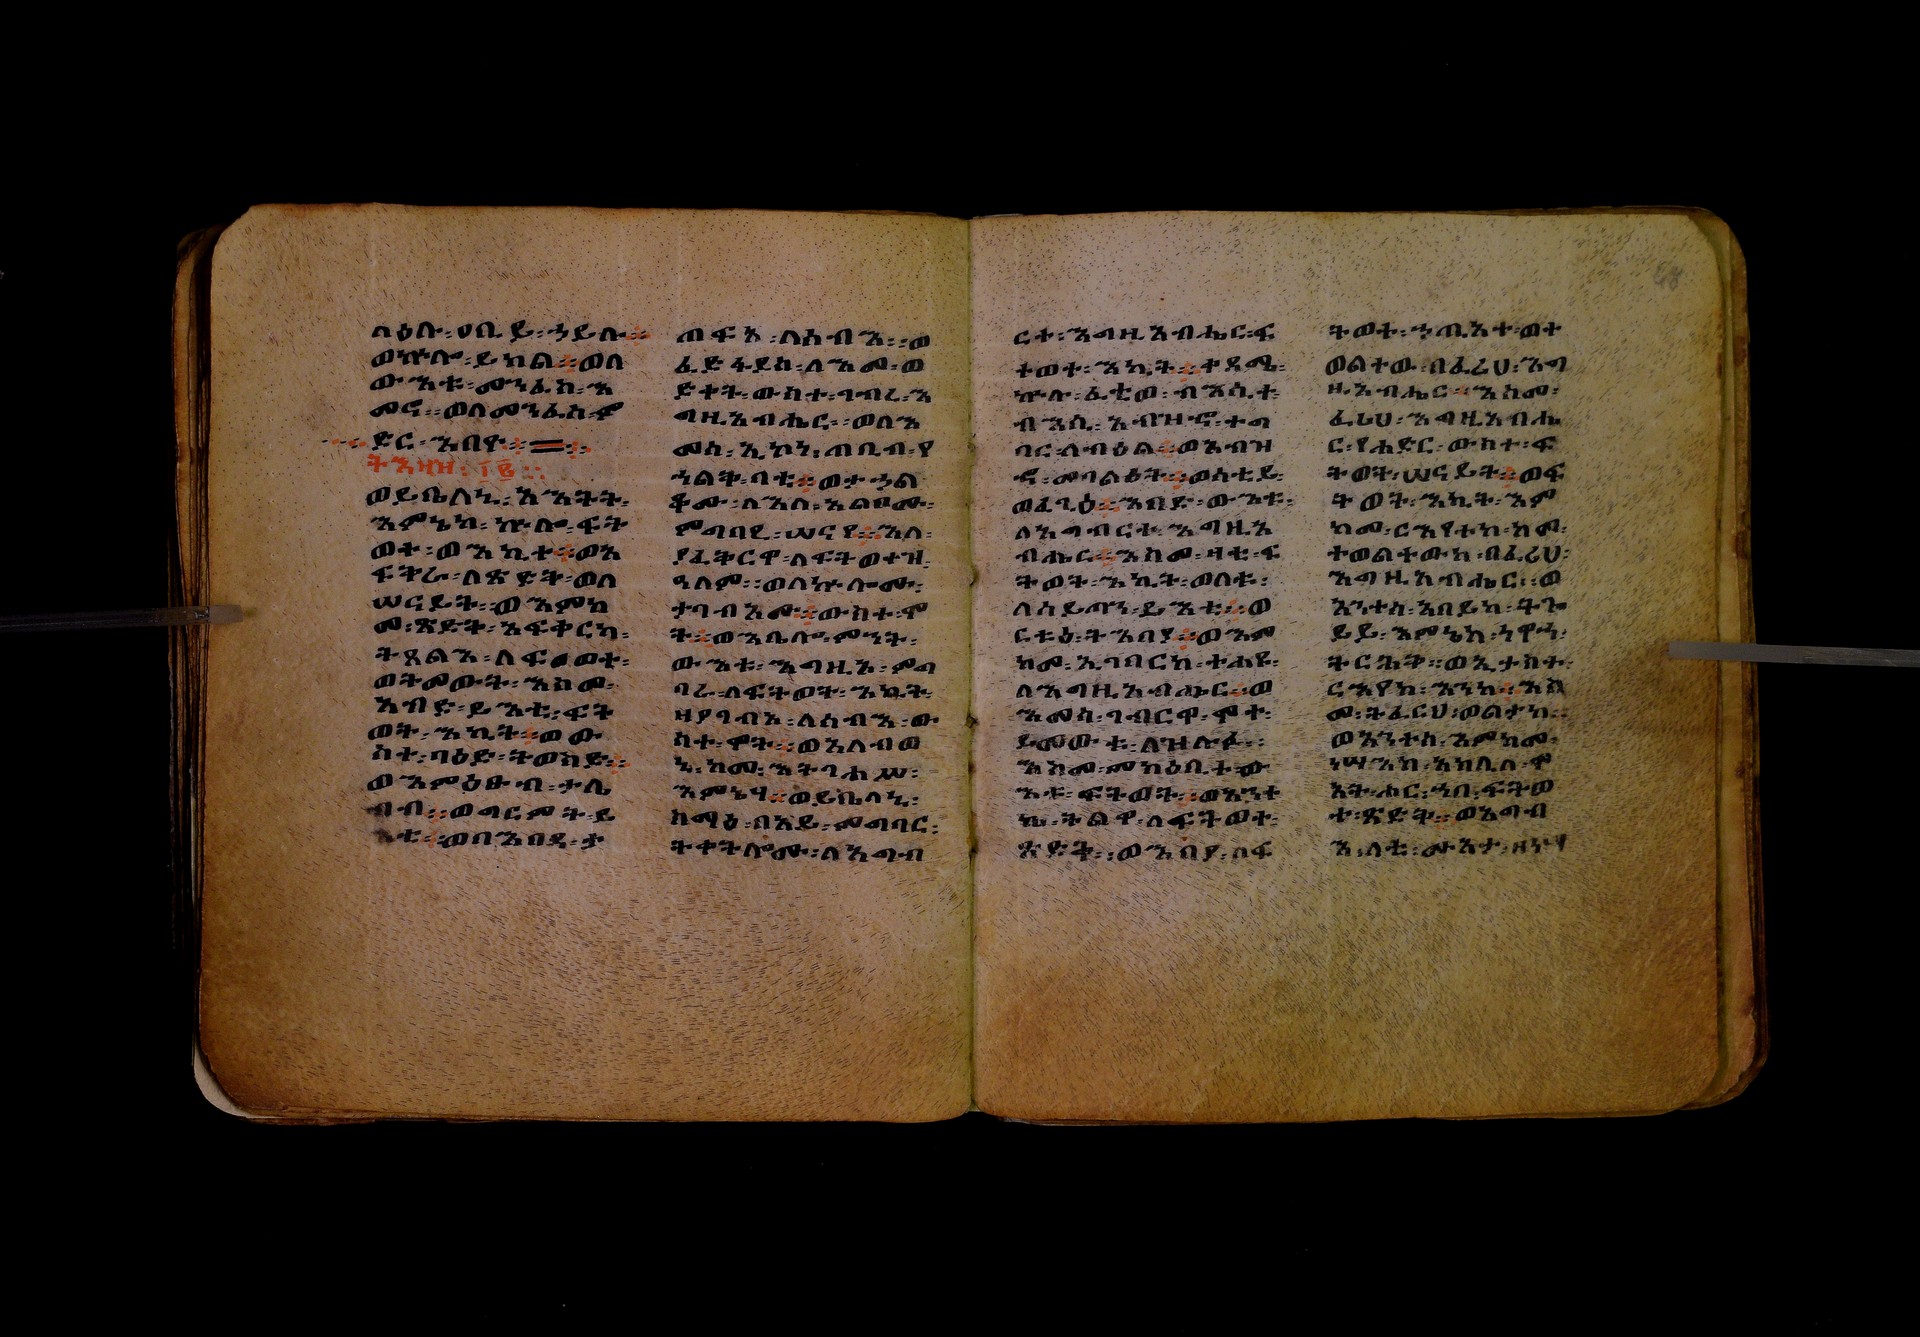 ልዕሉ፡ ህቢይ፡ ኀይሉ፡፡
ወኵሎ፡ ይክል፡፡ ወለ
ውእቱ፡ መንፈስ፡ እ
መኒ፡ ወለመንፈስ፡
ድር፡ እበየ፡፡
ትእዛዝ፡ ፲፪፡፡
ወይቤለኒ፡ አእትት፡
እምኔከ፡ ኵሎ፡ ፍት
ወተ፡ ወእኪተ፡፡ ወአ
ፍትሬ፡ ለጽድቅ፡ ወለ
ሠናይት፡ ወእምከ
መ፡ ጽድቅ፡ አፍቀርከ፡
ትጸልእ፡ ለፍትወተ፡
ወትመውት፡ እስመ፡
እብድ፡ ይእቲ፡ ፍት
ወት፡ እኪት፡፡ ወው
ስተ፡ ባዕድ፡ ትወስድ፡፡
ወእምዕፁብ፡ ታሌ
ብብ፡፡ ወግርምት፡ ይ
እቲ፡፡ ወበእበዳ፡
ወፍኦ፡ ለሰብእ፡፡ ወ
ፈድፋደሰ፡ ለእመ፡ ወ
ድቀት፡ ውስተ፡ ገብረ፡ እ
ግዚአብሔር፡ ወለእ
መሰ፡ ኢኮነ፡ ጠቢብ፡ የ
ኀልቅ፡ ባቲ፡፡ ወታኀል
ቆሙ፡ ለእለ፡ አልቦሙ፡
ምግባየ፡ ሠናየ፡፡ እለ፡
ያፈቅርዋ፡ ለፍትወተ፡ ዝ፡
ዓለም፡፡ ወለኵሎሙ፡
ታገብእሙ፡፡ ውስተ፡ ሞ
ት፡፡ ወእቤሎ፡ ምንት፡
ውእቱ፡ እግዚኦ፡ ምግ
ባራ፡ ለፍትወት፡ እኪት፡
ዘያገብእ፡ ለሰብእ፡ ው
ስተ፡ ሞት፡፡ ወአለብወ
ኒ፡ ከመ፡ እትገሐሥ፡
እምኔሃ፡፡ ወይቤለኒ፡
ስማዕ፡ በአይ፡ መግባር፡
ትቀትሎሙ፡ ለአግብ
ርተ፡ እግዚአብሔር፡ ፍ
ተወተ፡ እኪት፡፡ ተጸሜ፡
ኵሉ፡ ፈቲው፡ ብእሲተ፡
ብእሲ፡ አብዝኆ፡ ተግ
ባር፡ ለብዕል፡፡ ወአብዝ
ኆ፡ መባልዕት፡፡ ወስቴይ፡
ወፈጊዕ፡፡ እበድ፡ ውእቱ፡
ለአግብርተ፡ እግዚአ
ብሔር፡፡ እስመ፡ ዛቲ፡ ፍ
ትወት፡ እኪት፡ ወለቱ፡
ለሰይጣን፡ ይእቲ፡፡ ወ
ርቱዕ፡ ትእበያ፡፡ ወእም
ከመ፡ ኢገባርከ፡ ተሐዩ፡
ለእግዚአብሔር፡፡ ወ
እመሰ፡ ገብርዋ፡ ሞተ፡
ይመውቱ፡ ለዝሉፉ፡፡
እስመ፡ መስዕቢተ፡ ው
እቱ፡ ፍትወት፡፡ ወአንተ
ኬ፡ ትልዋ፡ ለፍትወተ፡
ጽድቅ፡፡ ወእበያ፡ ለፍ
ትወተ፡ ኃጢአተ፡ ወተ
ወልተው፡ በፈሪሀ፡ እግ
ዚአብሔር፡፡ እስመ፡
ፈሪሀ፡ እግዚአብሔ
ር፡ የሐድር፡ ውስተ፡ ፍ
ትወት፡ ሠናይት፡፡ ወፍ
ትወት፡ እኪት፡ እም
ከመ፡ ርእየተከ፡ ከመ፡
ተወልተውከ፡ በፈሪሀ፡
እግዚአብሔር፡፡ ወ
አንተሰ፡ አበይከ፡ ትጐ
ይይ፡ እምኔከ፡ ነዋኀ፡
ትርሕቅ፡፡ ወኢታስተ፡
ርእየከ፡ እንከ፡፡ እስ
መ፡ ትፈርህ፡ ወልታከ፡
ወአንተሰ፡ እምከመ፡
ነሣእከ፡ አክሊለ፡ ሞ
አት፡ ሖር፡ ኀበ፡ ፍትወ
ተ፡ ጽድቅ፡፡ ወአግብ
እ፡ ላቲ፡ ሙአተ፡ ዘነሣ